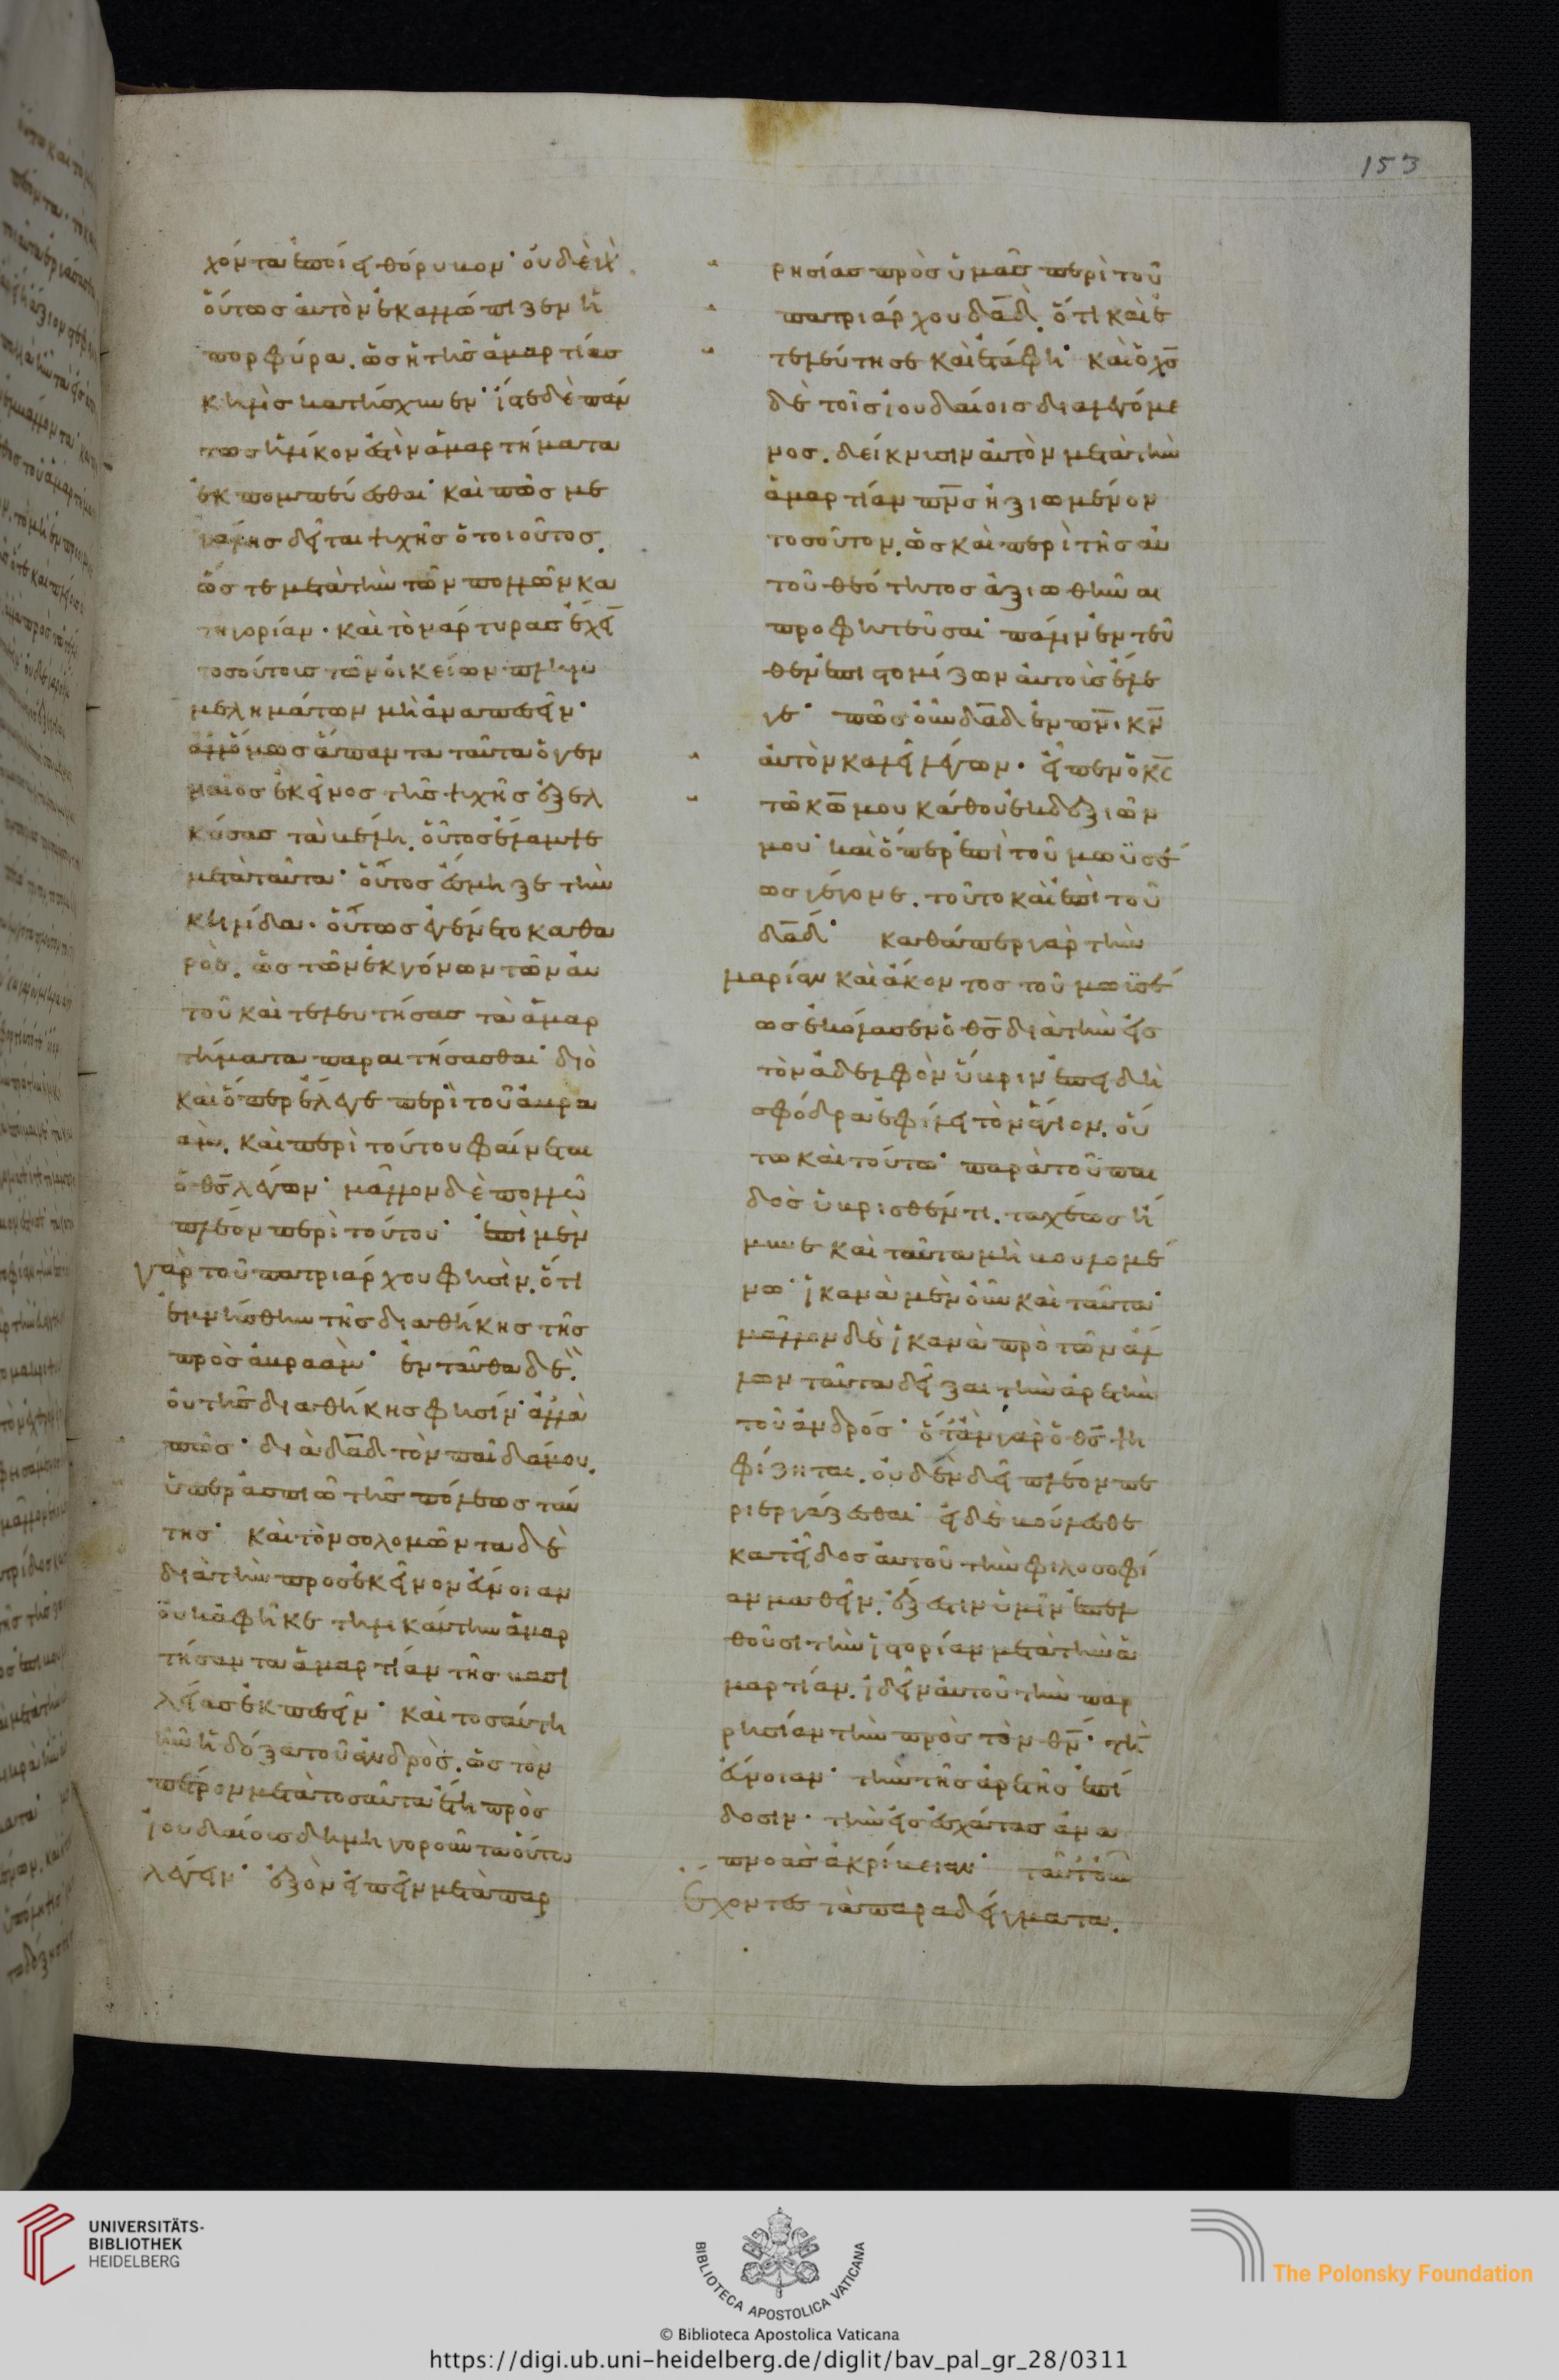 χόντα ἐποίει θόρυβον· οὐδὲ ἡ χ
οὕτως αὐτὸν ἐκαλλώπιζεν ἡ
πορφύρα. ὡς ἡ τῆς ἁμαρτίας
κηλὶς κατήσχυνεν· ἴστε δὲ πάν
τως ἡλίκον ἐστὶν ἁμαρτήματα
ἐκπομπεύεσθαι· καὶ πῶς με
γάλης δεῖται ψυχῆς ὁ τοιοῦτος.
ὥστε μετὰ τὴν τῶν πολλῶν κα
τηγορίαν. καὶ τὸ μάρτυρας ἔχειν
τοσούτοις τῶν οἰκείων πλημ
μελημάτων μὴ ἀναπεσεῖν·
ἀλλ' ὅμως ἅπαντα ταῦτα ὁ γεν
ναῖος ἐκεῖνος τῆς ψυχῆς ἐξελ
κύσας τὰ βέλη. οὗτος ἔλαμψε
μετὰ ταῦτα· οὗτος ἔσμηξε τὴν
κηλίδα. οὕτως ἐγένετο καθα
ρὸς. ὡς τῶν ἐκγόνων τῶν αὐ
τοῦ καὶ τελευτήσας τὰ ἁμαρ
τήματα παραιτήσασθαι· διὸ
καὶ ὅπερ ἔλεγε περὶ τοῦ ἀβρα
ὰμ. καὶ περὶ τούτου φαίνεται
ὁ θς λέγων· μᾶλλον δὲ πολλῶ
πλέον περὶ τούτου· ἐπὶ μὲν
γὰρ τοῦ πατριάρχου φησὶν. ὅτι
ἐμνήσθην τῆς διαθήκης τῆς
πρὸς ἀβραὰμ· ἐνταῦθα δὲ.
οὐ τῆς διαθήκης φησίν· ἀλλὰ
πῶς· διὰ δαδ τὸν παῖδά μου.
ὑπερασπιῶ τῆς πόλεως ταύ
της· καὶ τὸν σολομῶντα δὲ
διὰ τὴν πρὸς ἐκεῖνον εὔνοιαν
οὐκ ἀφῆκε τηλικαύτην ἁμαρ
τήσαντα ἁμαρτίαν τῆς βασι
λείας ἐκπεσεῖν· καὶ τοσαύτη
ἦν ἡ δόξα τοῦ ἀνδρὸς. ὡς τὸν
πέτρον μετὰ τοσαῦτα ἔτη πρὸς
ἰουδαίοις δημηγοροῦντα οὕτω
λέγειν· ἐξὸν εἰπεῖν μετὰ παρ
ρησίας πρὸς ὑμᾶς περὶ τοῦ
πατριάρχου δαδ. ὅτι καὶ ἐ
τελεύτησε καὶ ἐτάφη· καὶ ὁ χς
δὲ τοῖς ἰουδαίοις διαλεγόμε
νος. δείκνυσιν αὐτὸν μετὰ τὴν
ἁμαρτίαν πνς ἠξιωμένον
τοσοῦτον. ὡς καὶ περὶ τῆς αὐ
τοῦ θεότητος ἀξιωθῆναι
προφητεῦσαι· πάλιν ἐντεῦ
θεν ἐπιστομίζων αὐτοὺς ἔλε
γε· πῶς οὖν δαδ ἐν πνι κν
αὐτὸν καλεῖ λέγων. εἶπεν ὁ κς
τῶ κω μου κάθου ἐκ δεξιῶν
μου· καὶ ὅπερ ἐπὶ τοῦ μωϋσέ
ως γέγονε. τοῦτο καὶ ἐπὶ τοῦ
δαδ· καθάπερ γὰρ τὴν
μαρίαν καὶ ἄκοντος τοῦ μωϋσέ
ως ἐκόλασεν ὁ θς διὰ τὴν εἰς
τὸν ἀδελφὸν ὕβριν ἐπειδὴ
σφόδρα ἐφίλει τὸν ἅγιον. οὕ
τω καὶ τούτω παρὰ τοῦ παι
δὸς ὑβρισθέντι. ταχέως ἤ
μυνε καὶ ταῦτα μὴ βουλομέ
νω· ἱκανὰ μὲν οὖν καὶ ταῦτα·
μᾶλλον δὲ ἱκανὰ πρὸ τῶν ἄλ
λων ταῦτα δεῖξαι τὴν ἀρετὴν
τοῦ ἀνδρός· ὅταν γὰρ ὁ θς ψη
φίζηται. οὐδὲν δεῖ πλέον πε
ριεργάζεσθαι· εἰ δὲ βούλεσθε
κατ' εἶδος αὐτοῦ τὴν φιλοσοφί
αν μαθεῖν. ἔξεστιν ὑμῖν ἐπελ
θοῦσι τὴν ἱστορίαν μετὰ τὴν ἁ
μαρτίαν. ἰδεῖν αὐτοῦ τὴν παρ
ρησίαν τὴν πρὸς τὸν θν· τὴν
εὔνοιαν· τὴν τῆς ἀρετῆς ἐπί
δοσιν· τὴν εἰς ἐσχάτας ἀνα
πνοὰς ἀκρίβειαν· ταῦτ' οὖν
ἔχοντες τὰ παραδείγματα.
153
UNIVERSITÄTS-
BIBLIOTHEK
HEIDELBERG
BIBLIOTECA APOSTOLICA VATICANA
The Polonsky Foundation
© Biblioteca Apostolica Vaticana
https://digi.ub.uni-heidelberg.de/diglit/bav_pal_gr_28/0311